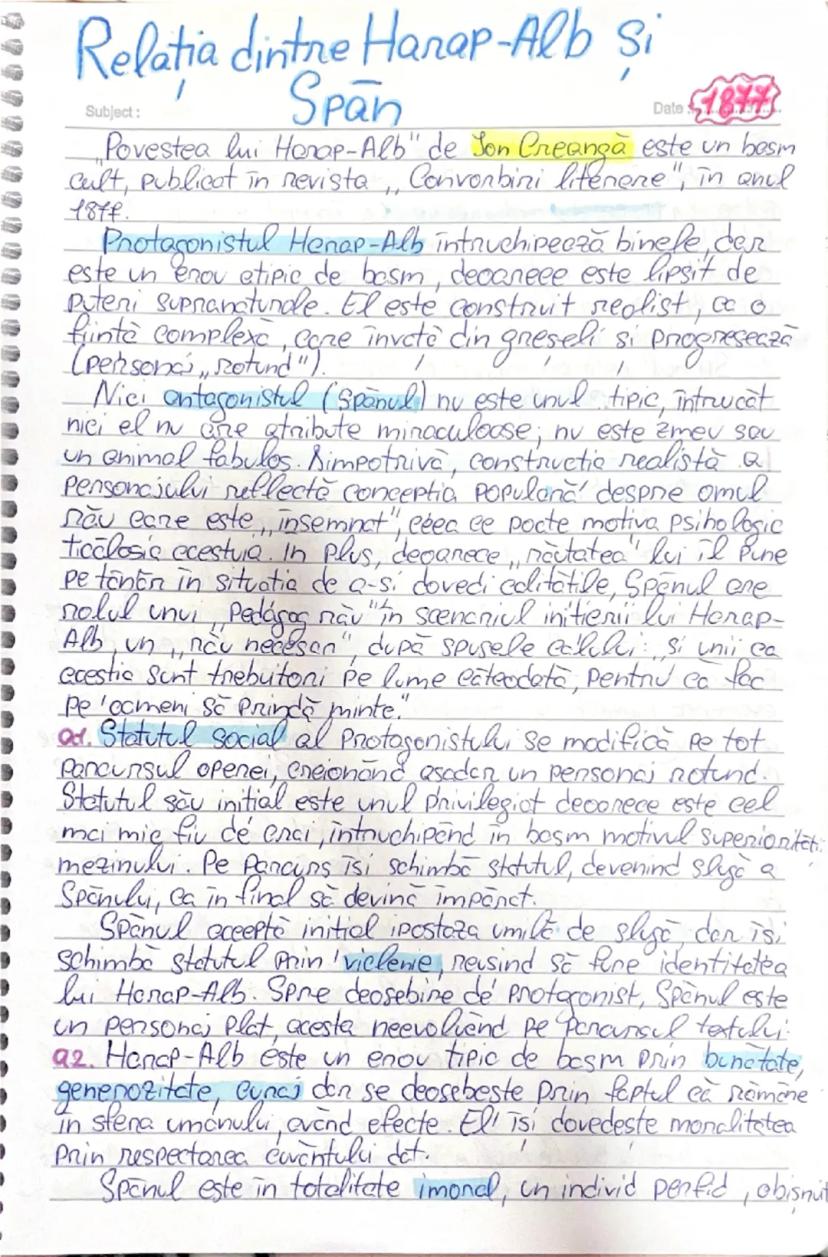 Relația dintre Harap-Alb și
Spân
Subject :
Date : 1877
„Povestea lui Harap-Alb" de Ion Creangă este un basm
cult, publicat în revista „Convorbiri literare", în anul
1877.
Protagonistul Harap-Alb întruchipează binele, dar
este un erou atipic de basm, deoarece este lipsit de
puteri supranaturale. El este construit realist, ca o
ființă complexă, care învață din greșeli și progresează
(personaj „rotund").
Nici antagonistul (Spânul) nu este unul tipic, întrucât
nici el nu are atribute miraculoase; nu este zmeu sau
un animal fabulos. Dimpotrivă, construcția realistă a
personajului reflectă concepția populară despre omul
rău care este „însemnat", ceea ce poate motiva psihologic
ticăloșia acestuia. În plus, deoarece „răutatea" lui îl pune
pe tânăr în situația de a-și dovedi calitățile, Spânul are
rolul unui „pedagog rău" în scenariul inițierii lui Harap-
Alb, un „rău necesar", după spusele calului: „și unii ca
aceștia sunt trebuitori pe lume câteodată, pentru că fac
pe oameni să prindă minte."
a1. Statutul social al protagonistului se modifică pe tot
parcursul operei, creionând așadar un personaj rotund.
Statutul său inițial este unul privilegiat deoarece este cel
mai mic fiu de crai, întruchipând în basm motivul superiorității
mezinului. Pe parcurs își schimbă statutul, devenind slugă a
Spânului, ca în final să devină împărat.
Spânul acceptă inițial ipostaza umilă de slugă, dar își
schimbă statutul prin viclenie, reușind să fure identitatea
lui Harap-Alb. Spre deosebire de protagonist, Spânul este
un personaj plat, acesta neevoluând pe parcursul textului.
a2. Harap-Alb este un erou tipic de basm prin bunătate,
generozitate, curaj dar se deosebește prin faptul că rămâne
în sfera umanului, având efecte. El își dovedește moralitatea
prin respectarea cuvântului dat.
Spânul este în totalitate imoral, un individ perfid, obișnuit